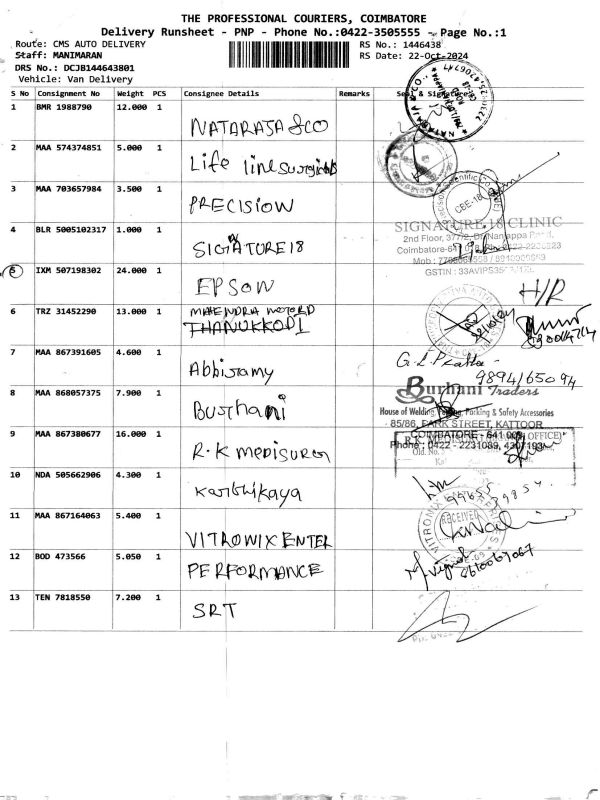 THE PROFESSIONAL COURIERS, COIMBATORE
Delivery Runsheet - PNP - Phone No.:0422-3505555 - Page No.:1
Route: CMS AUTO DELIVERY RS No.: 1446438
Staff: MANIMARAN RS Date: 22-Oct-2024
DRS No.: DCJB144643801
Vehicle: Van Delivery
S No Consignment No Weight PCS Consignee Details Remarks Seal & Signature
1 BMR 1988790 12.000 1 NATARAJA & CO
2 MAA 574374851 5.000 1 Life line surgicals
3 MAA 703657984 3.500 1 PRECISION
4 BLR 5005102317 1.000 1 SIGNATURE 18
SIGNATURE 18 CLINIC
2nd Floor, 37/2, Dr. Nanjappa Road,
Coimbatore-
Mob :
GSTIN : 33AVIPS
CBE-18
5 IXM 507198302 24.000 1 EPSON
H/R
6 TRZ 31452290 13.000 1 MAHENDRA MOTORD
THANUKKODI
7 MAA 867391605 4.600 1 Abbisamy
9894165094
8 MAA 868057375 7.900 1 Burhani
Burhani Traders
House of Welding, Packing & Safety Accessories
85/86, PARK STREET, KATTOOR
COIMBATORE - 641 009
Phone : 0422 - 2231089,
9 MAA 867380677 16.000 1 R.K MEDISURG
10 NDA 505662906 4.300 1 Karthikaya
11 MAA 867164063 5.400 1 VITRONIX ENTER
RECEIVED
12 BOD 473566 5.050 1 PERFORMANCE
13 TEN 7818550 7.200 1 SRT